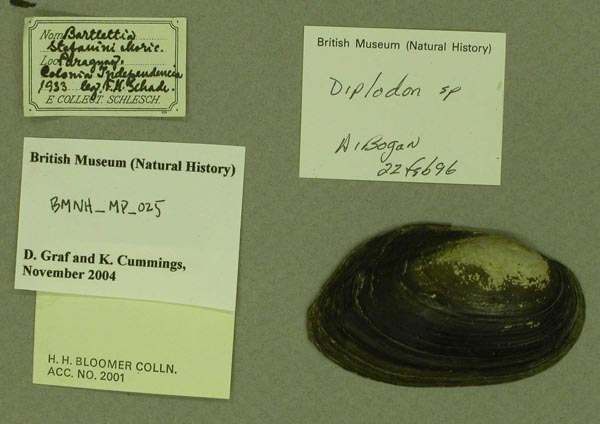 Nom. Bartlettia
Stefanini Moric.
Loc. Paraguay.
Colonia Independencia
1933 leg. F. H. Schade.
E COLLECT. SCHLESCH.
British Museum (Natural History)
Diplodon sp
A. Bogan
22 Feb 96
British Museum (Natural History)
BMNH_MP_025
D. Graf and K. Cummings,
November 2004
H. H. BLOOMER COLLN.
ACC. NO. 2001